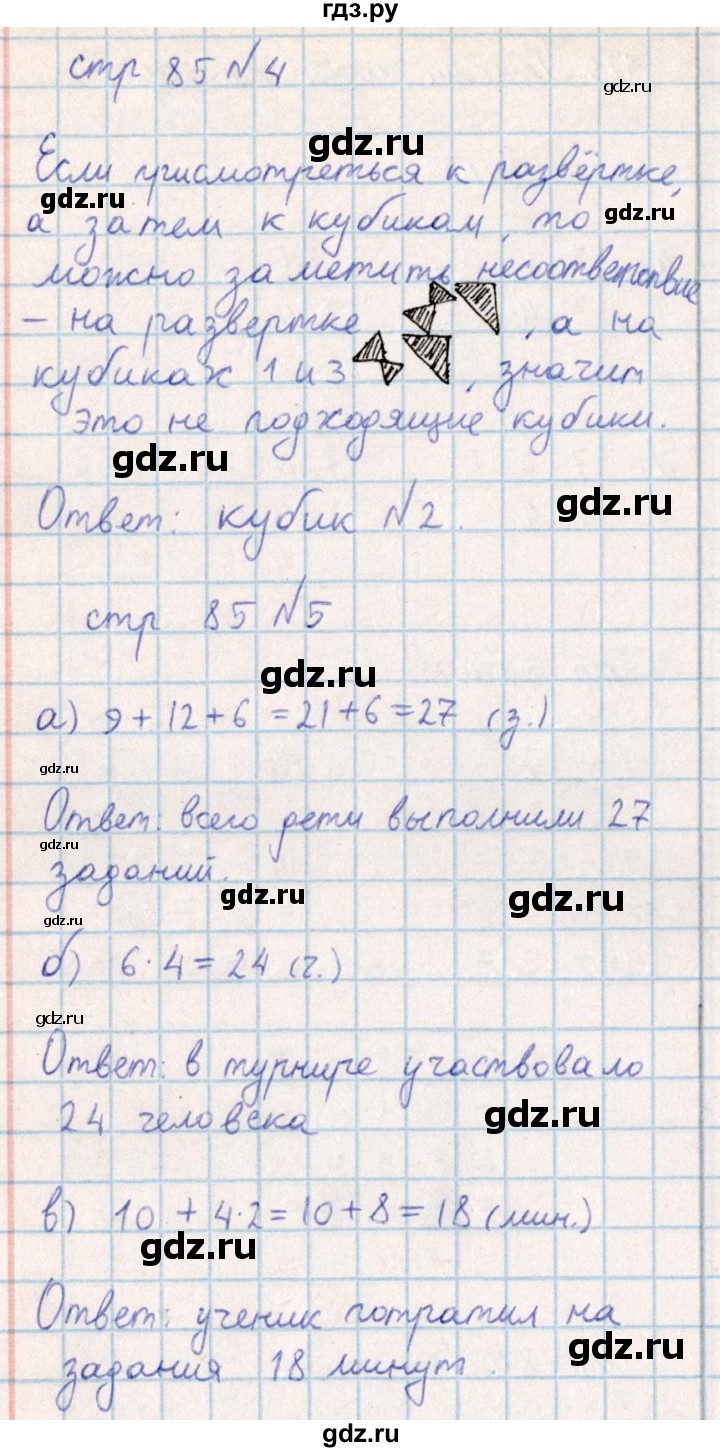 гдз.ру
стр 85 №4
gdz.ru
gdz.ru
Если присмотреться к развёртке,
а затем к кубикам, то
gdz.ru
можно заметить несоответствие
- на развертке , а на
кубиках 1 и 3 , значит
это не подходящие кубики.
gdz.ru
gdz.ru
Ответ: кубик №2.
стр 85 №5
gdz.ru
а) 9+12+6=21+6=27 (з.)
gdz.ru
Ответ: всего дети выполнили 27
gdz.ru
заданий.
gdz.ru
gdz.ru
gdz.ru
б) 6·4=24 (ч.)
gdz.ru
Ответ: в турнире участвовало
24 человека
gdz.ru
в) 10 + 4·2=10+8=18 (мин.)
gdz.ru
Ответ: ученик потратил на
gdz.ru
задания 18 минут.
gdz.ru